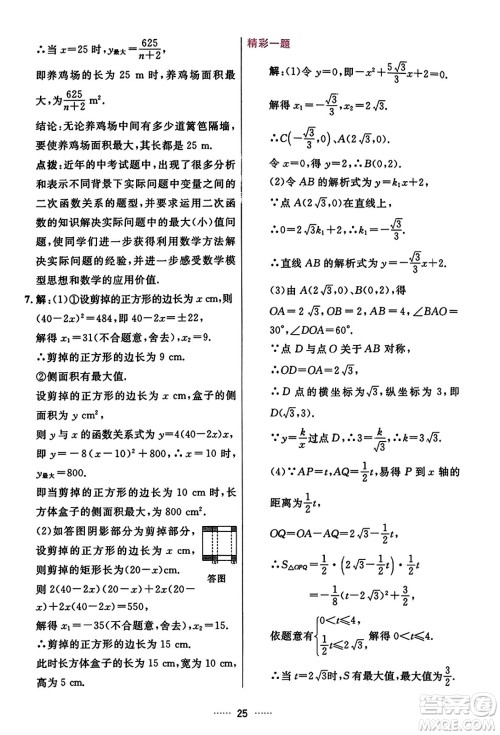 ∴当 x＝25 时，y最大＝625/(n＋2)
即养鸡场的长为 25 m 时，养鸡场面积
最大，为 625/(n＋2) m².
结论：无论养鸡场中间有多少道篱笆隔墙，
要使养鸡场面积最大，其长都是 25 m.
点拨：近年的中考试题中，出现了很多
和不同背景下实际问题中变量之间的
二次函数关系的题型，并要求运用二次
函数的知识解决实际问题中的最大（小）值问
题，从中获得利用数学方法解决
实际问题的经验，并进一步感受数学模
型思想和数学的应用价值.
7. 解：(1)①设剪掉的正方形的边长为 x cm，则
(40－2x)²＝484，即 40－2x＝±22，
解得 x₁＝31（不合题意，舍去），x₂＝9.
∴剪掉的正方形的边长为 9 cm.
②侧面积有最大值.
设剪掉的正方形的边长为 x cm，盒子的侧
面积为 y cm²，
则 y 与 x 的函数关系式为 y＝4(40－2x)x，
即 y＝－8(x－10)²＋800，
∴x＝10 时，y最大＝800.
即当剪掉的正方形的边长为 10 cm 时，长
方体盒子的侧面积最大为 800 cm².
(2)如答图阴影部分为剪掉的部分，
设剪掉的正方形的边长为 x cm，则
剪掉的矩形长为(20－x)cm，
则 2(40－2x)(20－x)＋2x(20－x)
＋2x(40－2x)＝550，
解得 x₁＝－35（不合题意，舍去），x₂＝15.
∴剪掉的正方形的边长为 15 cm.
此时长方体盒子的长为 15 cm，宽为 10 cm，
高为 5 cm.
答图
精彩一题
解：(1)令 y＝0，即 2x²＋5√3x
解得 x₁＝－√3/3，
∴C(－√3/3，0)，A(2√3，0).
令 x＝0，得 y＝2，∴B(0，2).
(2)令 AB 的解析式为 y＝k₁x＋2，
∵点 A(2√3，0)在直线上，
∴0＝2√3k₁＋2，
∴k₁＝－√3/3.
∴直线 AB 的解析式为 y＝－√3/3x＋2.
(3)由 A(2√3，0)，B(0，2)得
OA＝2√3，OB＝2，AB＝4，∠BAO＝
30°，∠DOA＝60°.
∵点 D 与点 O 关于 AB 对称，
∴OD＝OA＝2√3.
∴D 点的横坐标为√3，纵坐标为 3，
即 D(√3，3).
∵y＝k/x过点 D，∴3＝k/√3，∴k＝3√3.
(4)∵AP＝t，AQ＝√3/2t，P 到 x 轴的
距离为1/2t，
OQ＝OA－AQ＝2√3－√3/2t，
∴S△OPQ＝1/2·(2√3－√3/2t)·1/2t
＝－√3/8(t－2)²＋√3/2，
依题意有{0＜t≤4，
得 0＜t≤4.
25